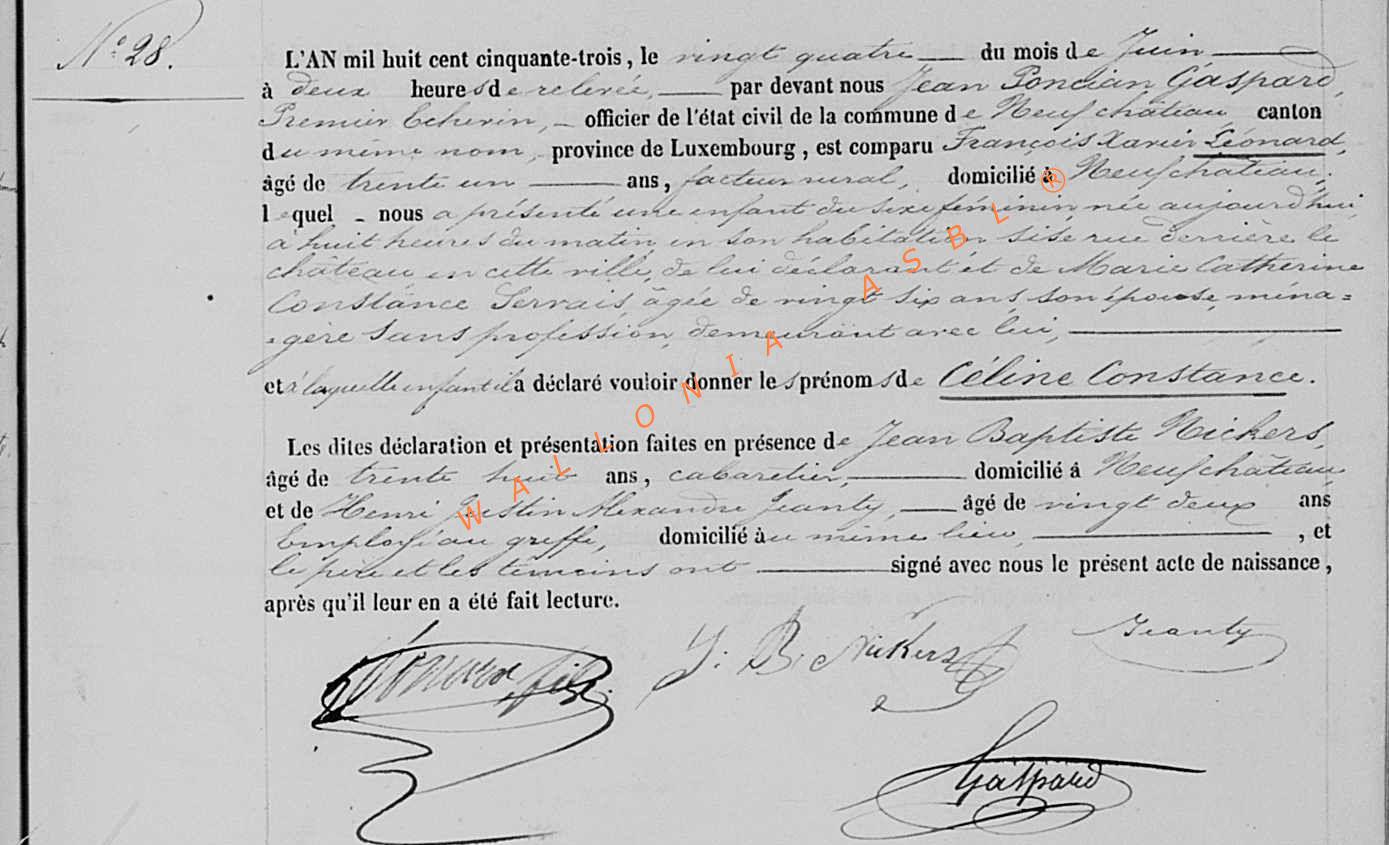 N° 28.
L'AN mil huit cent cinquante-trois, le vingt quatre du mois de Juin
à deux heures de relevée, par devant nous Jean Poncian Gaspard,
Premier Echevin, officier de l'état civil de la commune de Neufchâteau canton
du même nom, province de Luxembourg, est comparu François Xavier Léonard,
âgé de trente un ans, facteur rural, domicilié à Neufchateau,
lequel nous a présenté une enfant du sexe féminin, née aujourd'hui
a huit heures du matin en son habitation sise rue derrière le
château en cette ville, de lui déclarant et de Marie Catherine
Constance Servais, âgée de vingt six ans son épouse, ména=
=gère sans profession, demeurant avec lui,
et à laquelle enfant il a déclaré vouloir donner les prénoms de Céline Constance.
Les dites déclaration et présentation faites en présence de Jean Baptiste Nickers,
âgé de trente huit ans, cabaretier, domicilié à Neufchâteau
et de Henri Justin Alexandre Jeanty, âgé de vingt deux ans
Employé au greffe, domicilié au même lieu, , et
le père et les témoins ont signé avec nous le présent acte de naissance,
après qu'il leur en a été fait lecture.
Léonard fils
J. B. Nickers
Jeanty
Gaspard
WALLONIA ASBL ®